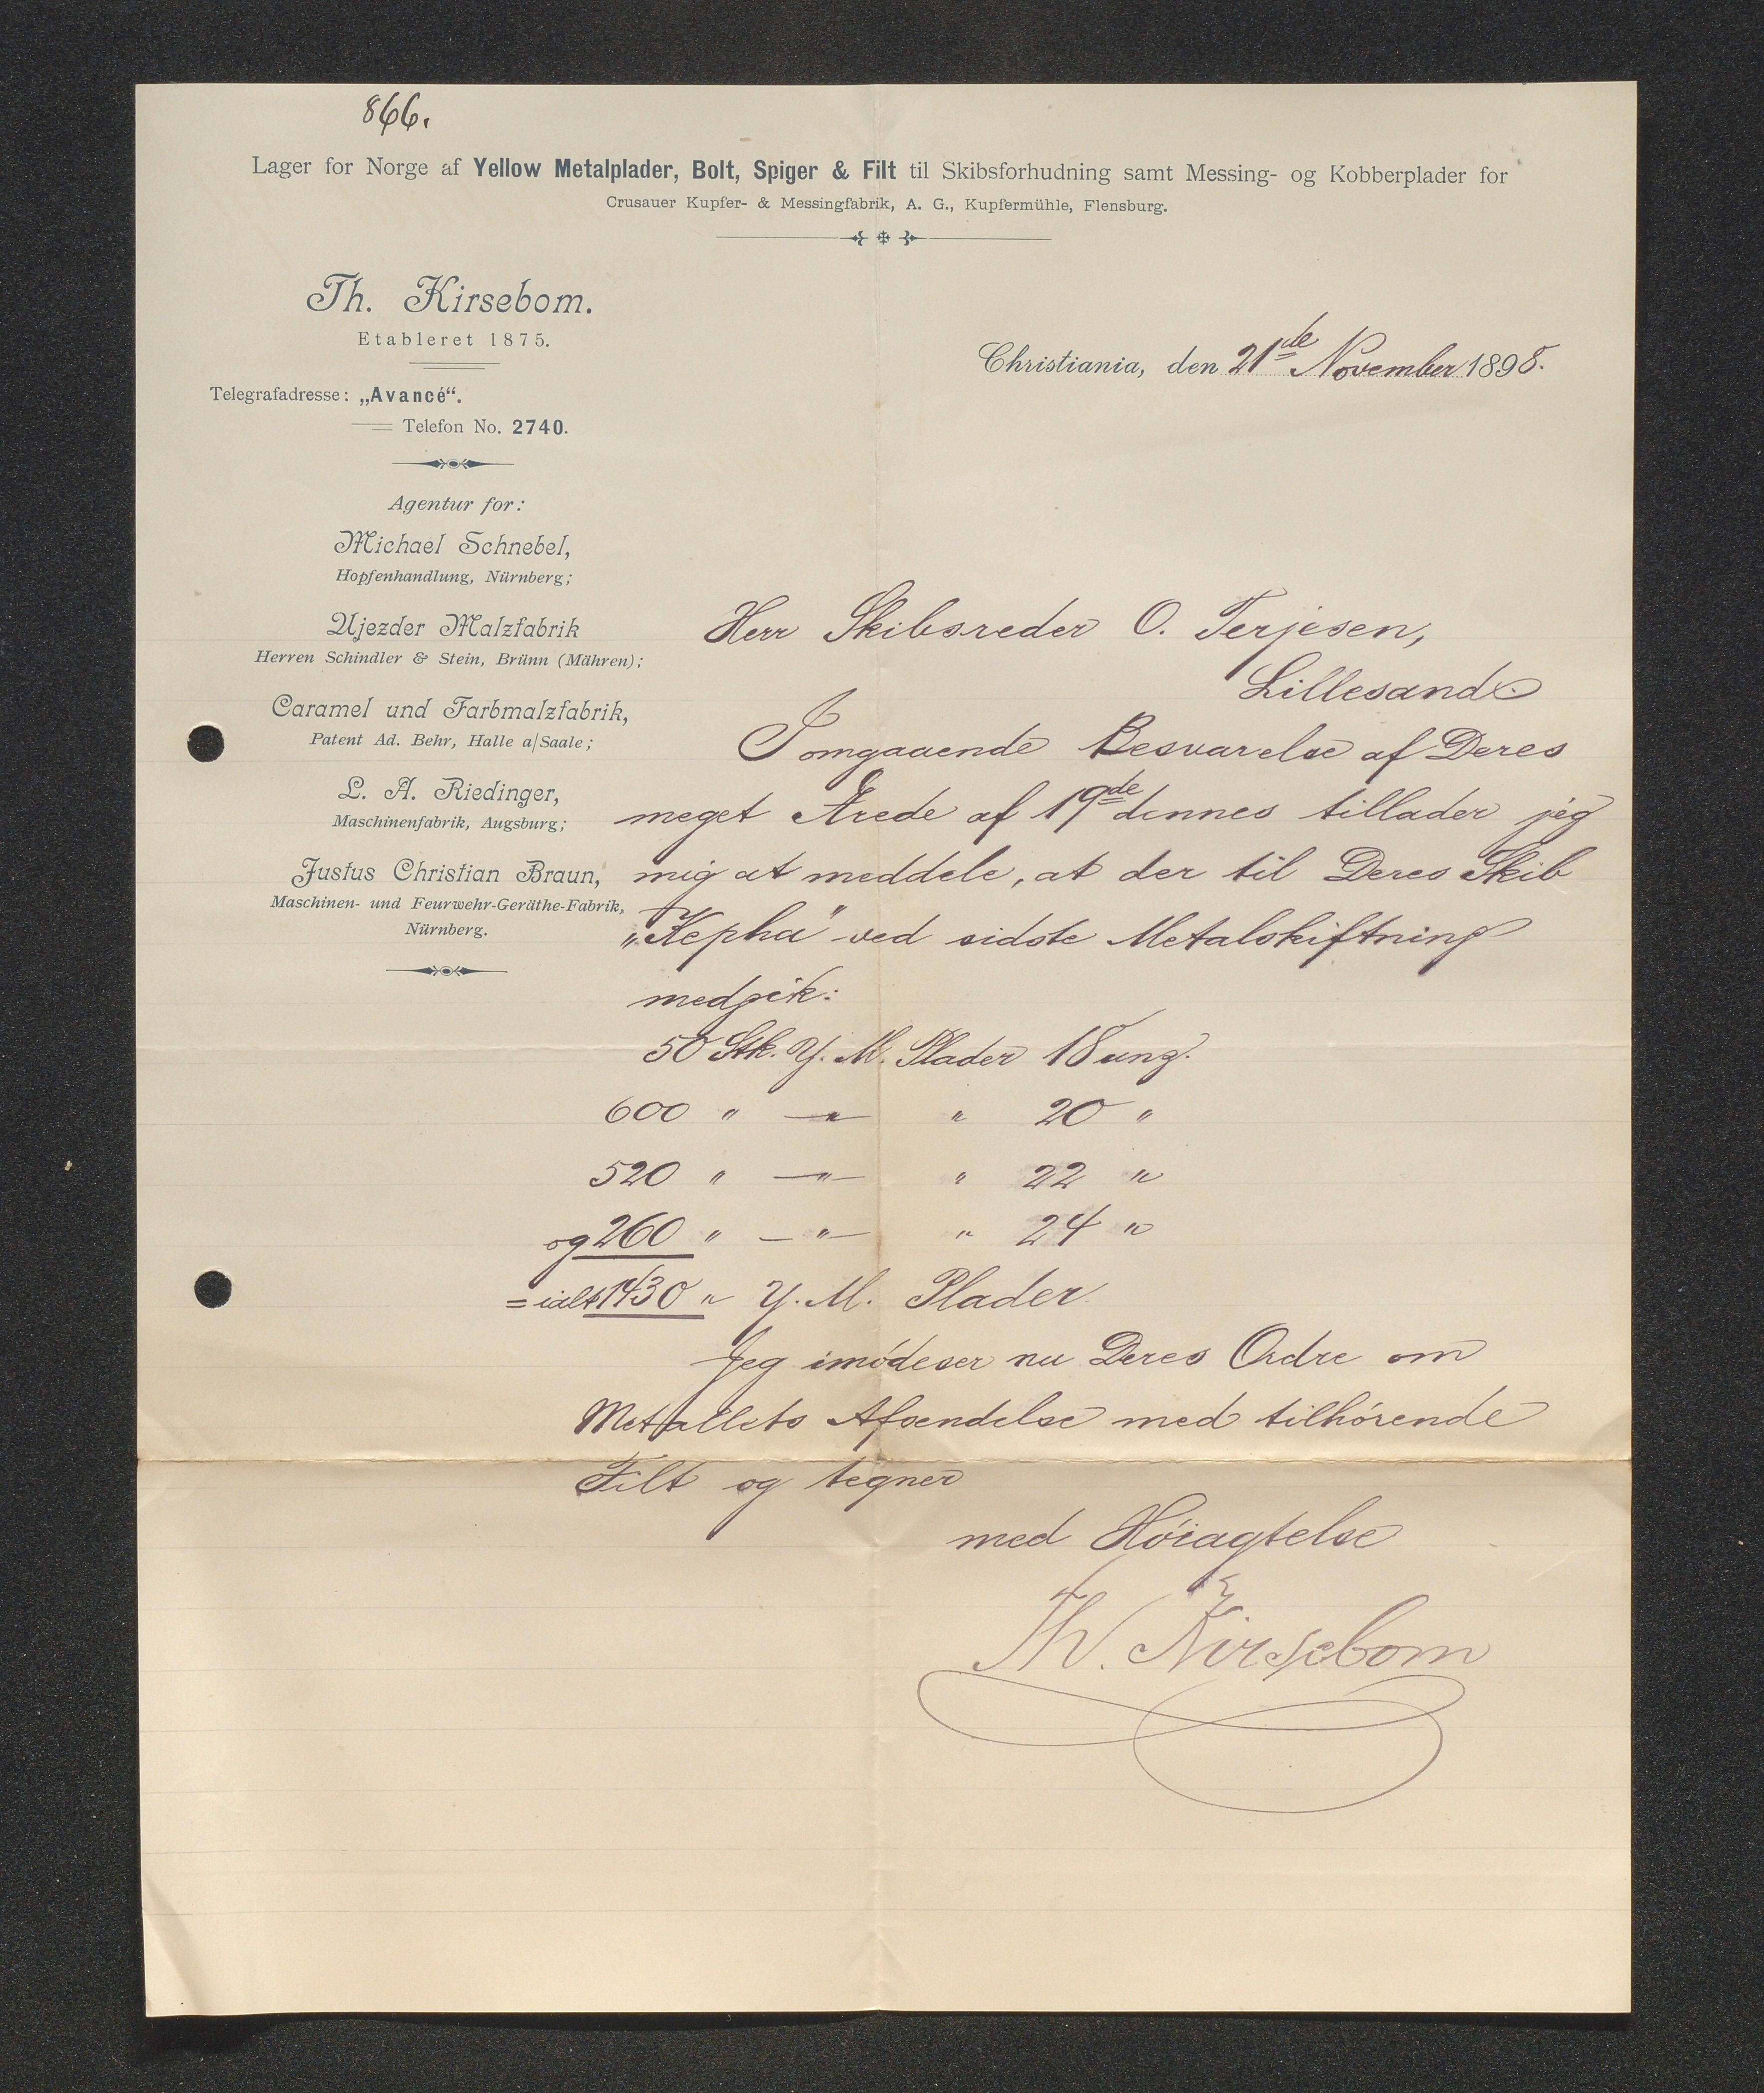 866.
Lager for Norge af Yellow Metalplader, Bolt, Spiger & Filt til Skibsforhudning samt Messing- og Kobberplader for
Crusauer Kupfer- & Messingfabrik, A. G., Kupfermühle, Flensburg.
Th. Kirsebom.
Etableret 1875.
Telegrafadresse: „Avancé“.
Telefon No. 2740.
Agentur for:
Michael Schnebel,
Hopfenhandlung, Nürnberg;
Ujezder Malzfabrik
Herren Schindler & Stein, Brünn (Mähren);
Caramel und Farbmalzfabrik,
Patent Ad. Behr, Halle a/Saale;
L. A. Riedinger,
Maschinenfabrik, Augsburg;
Justus Christian Braun,
Maschinen- und Feurwehr-Geräthe-Fabrik,
Nürnberg.
Christiania, den 21de November 1898.
Herr Skibsreder O. Terjesen,
Lillesand.
I omgaaende Besvarelse af Deres
meget Ærede af 19de dennes tillader jeg
mig at meddele, at der til Deres Skib
„Kepha" ved sidste Metalskiftning
medgik:
50 Stk. Y. M. Plader 18 unz.
600 " —"— " 20 "
520 " —"— " 22 "
og 260 " —"— " 24 "
= ialt 1430 " Y. M. Plader
Jeg imødeser nu Deres Ordre om
Metallets Afsendelse med tilhørende
Filt og tegner
med Høiagtelse
Th. Kirsebom